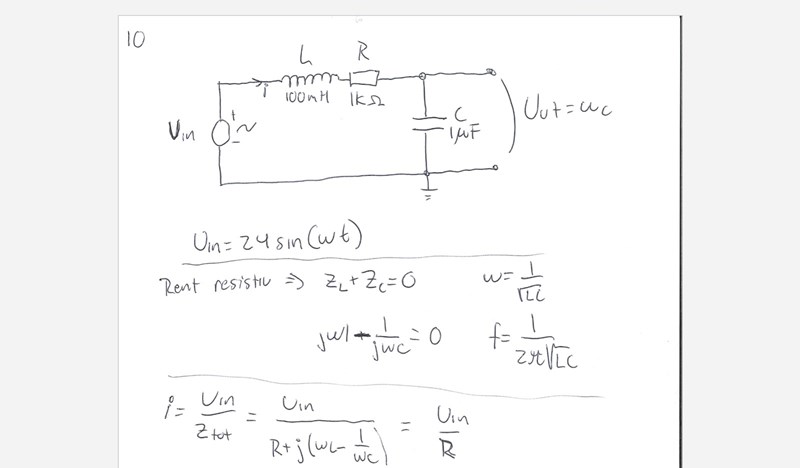 10
L R
i 100mH 1kΩ
C
1μF
Uin + ~ -
Uut = uc
Uin = 24 sin(wt)
Rent resistiv => ZL + ZC = 0 w = 1/√LC
jwl + 1/jwc = 0 f = 1/2π√LC
i = Uin/Ztot = Uin/R+j(wL - 1/wc) = Uin/R